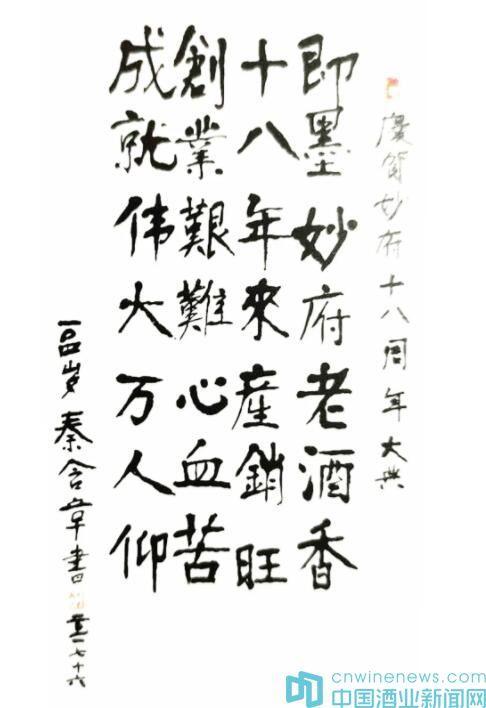 慶賀妙府十八周年大典
即墨妙府老酒香
十八年來産銷旺
創業艱難心血苦
成就伟大万人仰
秦含章書
cnwinenews.com
中国酒业新闻网